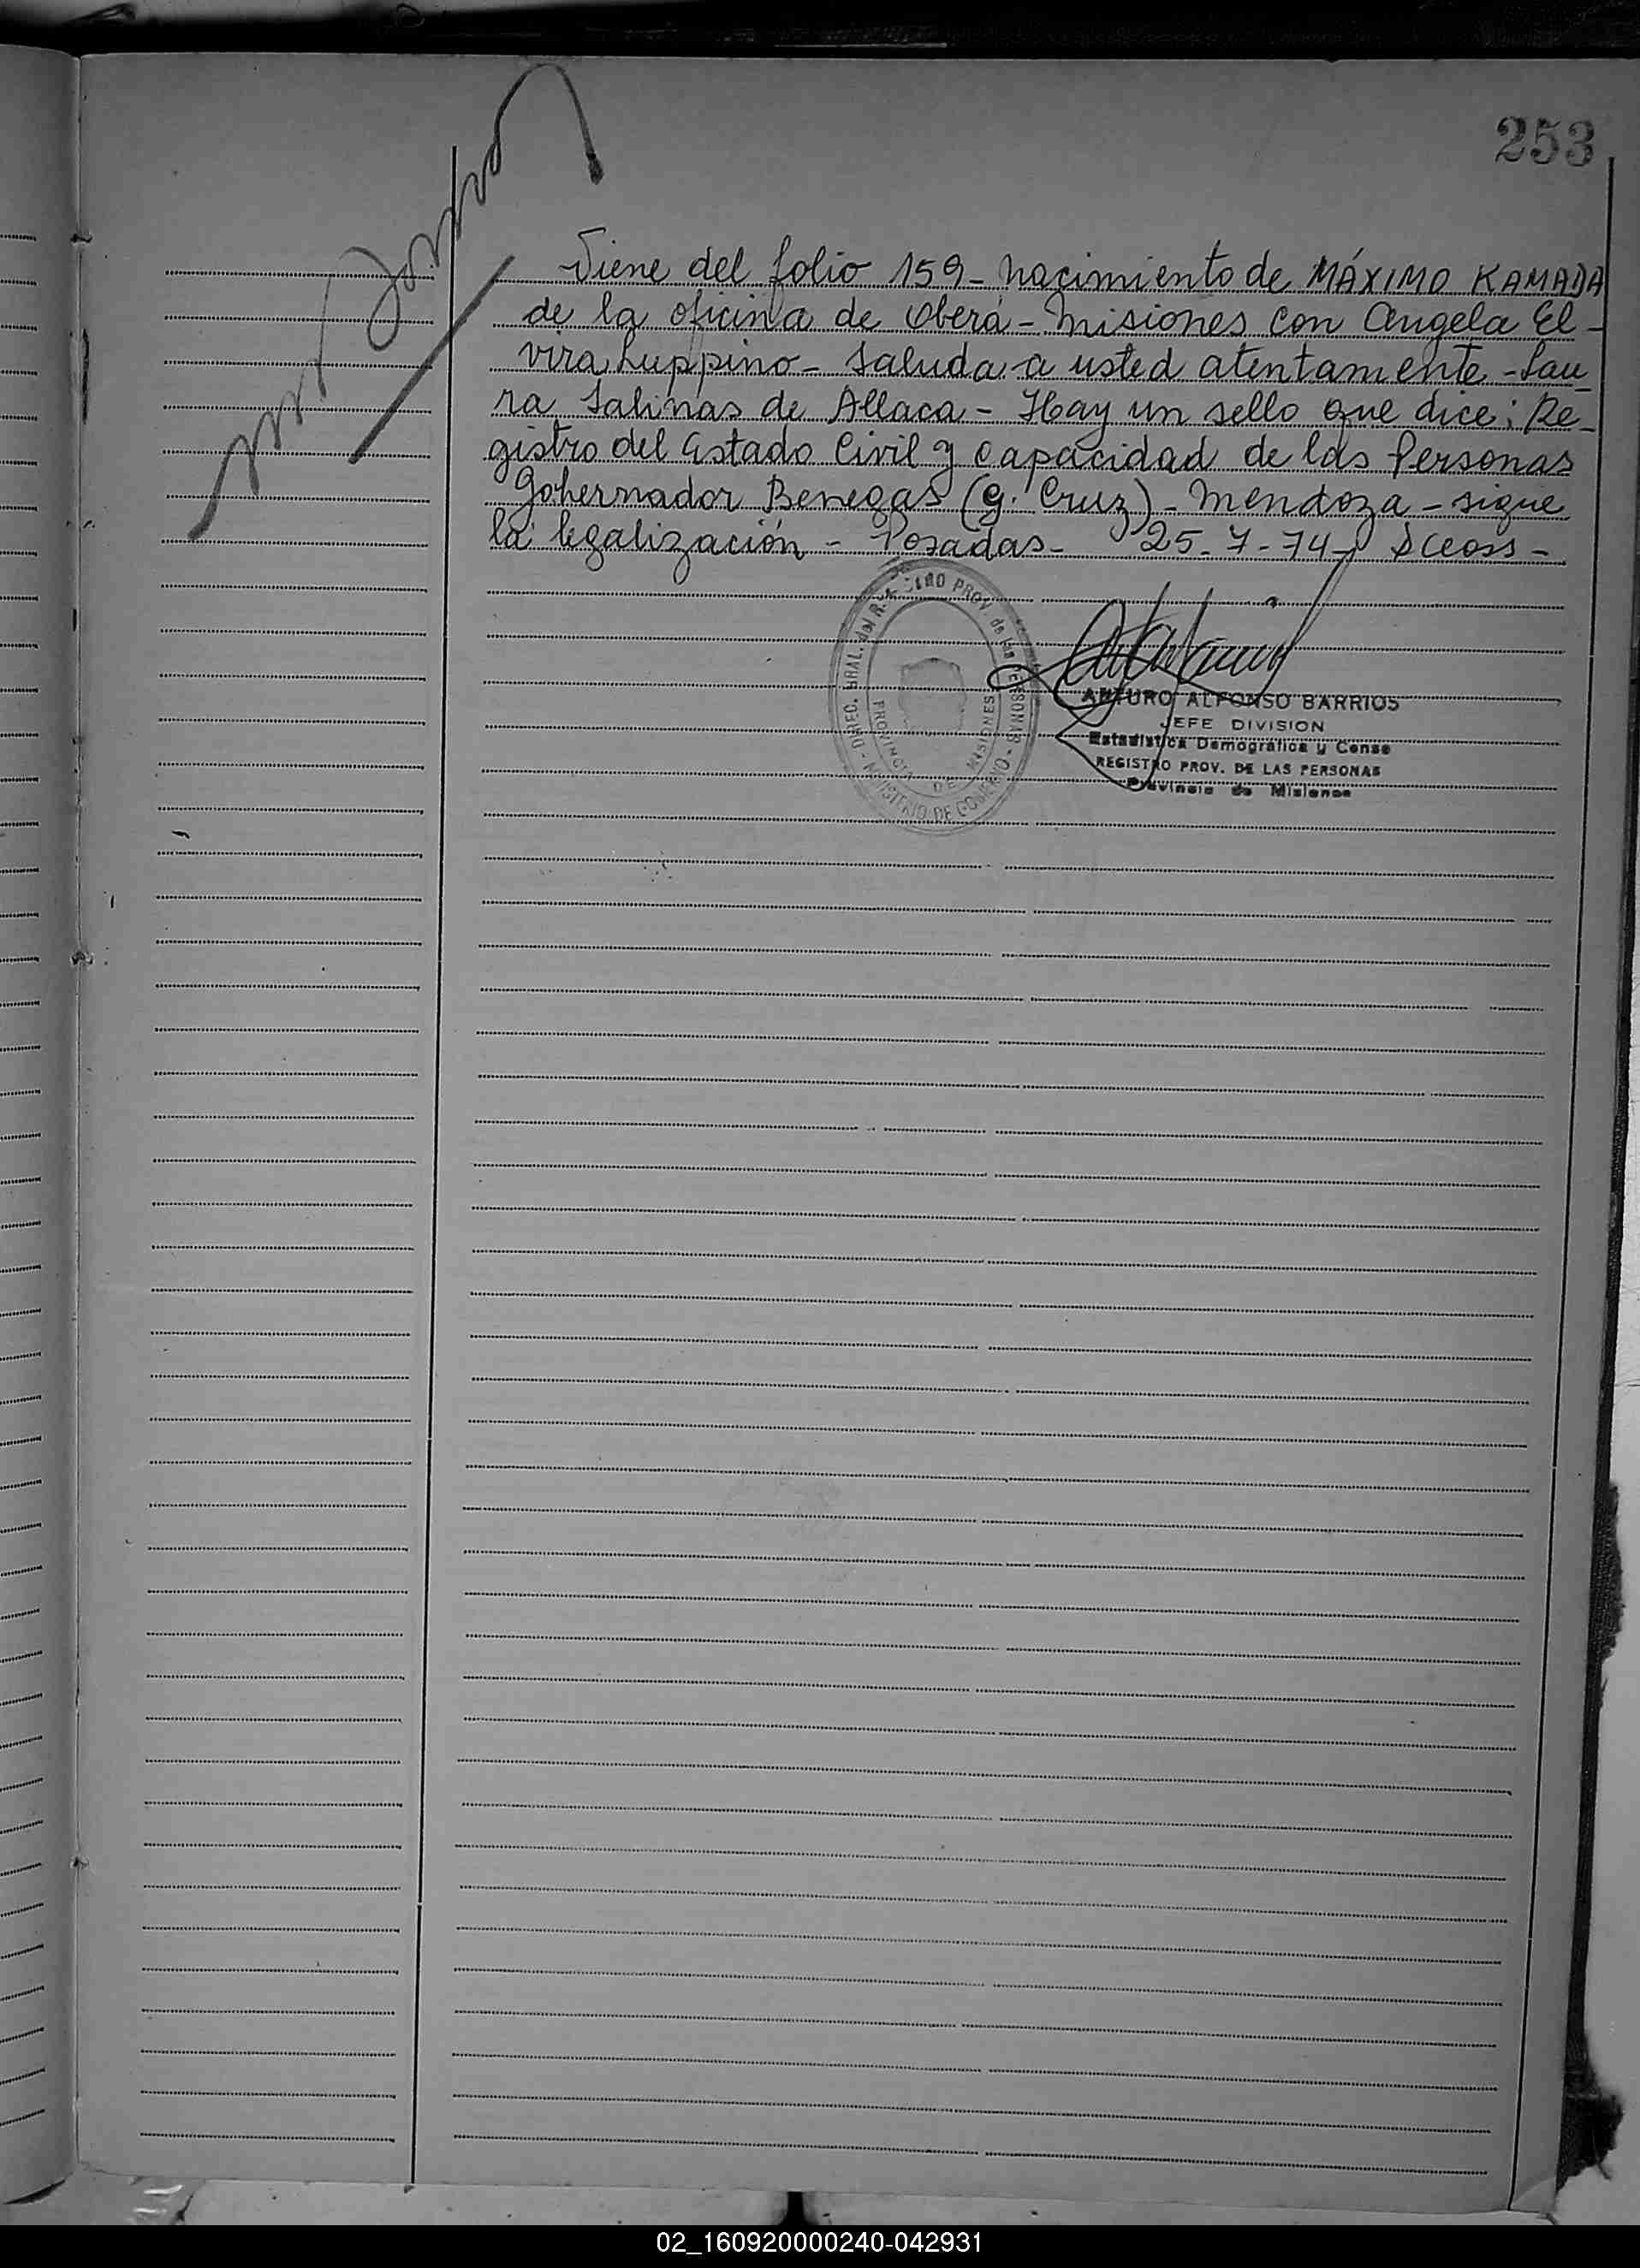 253
Viene del folio 159 - Nacimiento de MÁXIMO KAMADA
de la oficina de Oberá - Misiones con Angela El-
vira Luppino - Saluda a usted atentamente - Lau-
ra Salinas de Allaca - Hay un sello que dice: Re-
gistro del Estado Civil y Capacidad de las Personas
Gobernador Benegas (G. Cruz) - Mendoza - sigue
la legalización - Posadas - 25-7-74 -
DIREC. GRAL. del REGISTRO PROV. de las PERSONAS - MINISTERIO DE GOBIERNO -
PROVINCIA DE MISIONES
ARTURO ALFONSO BARRIOS
JEFE DIVISION
Estadística Demográfica y Censo
REGISTRO PROV. DE LAS PERSONAS
Provincia de Misiones
02_160920000240-042931